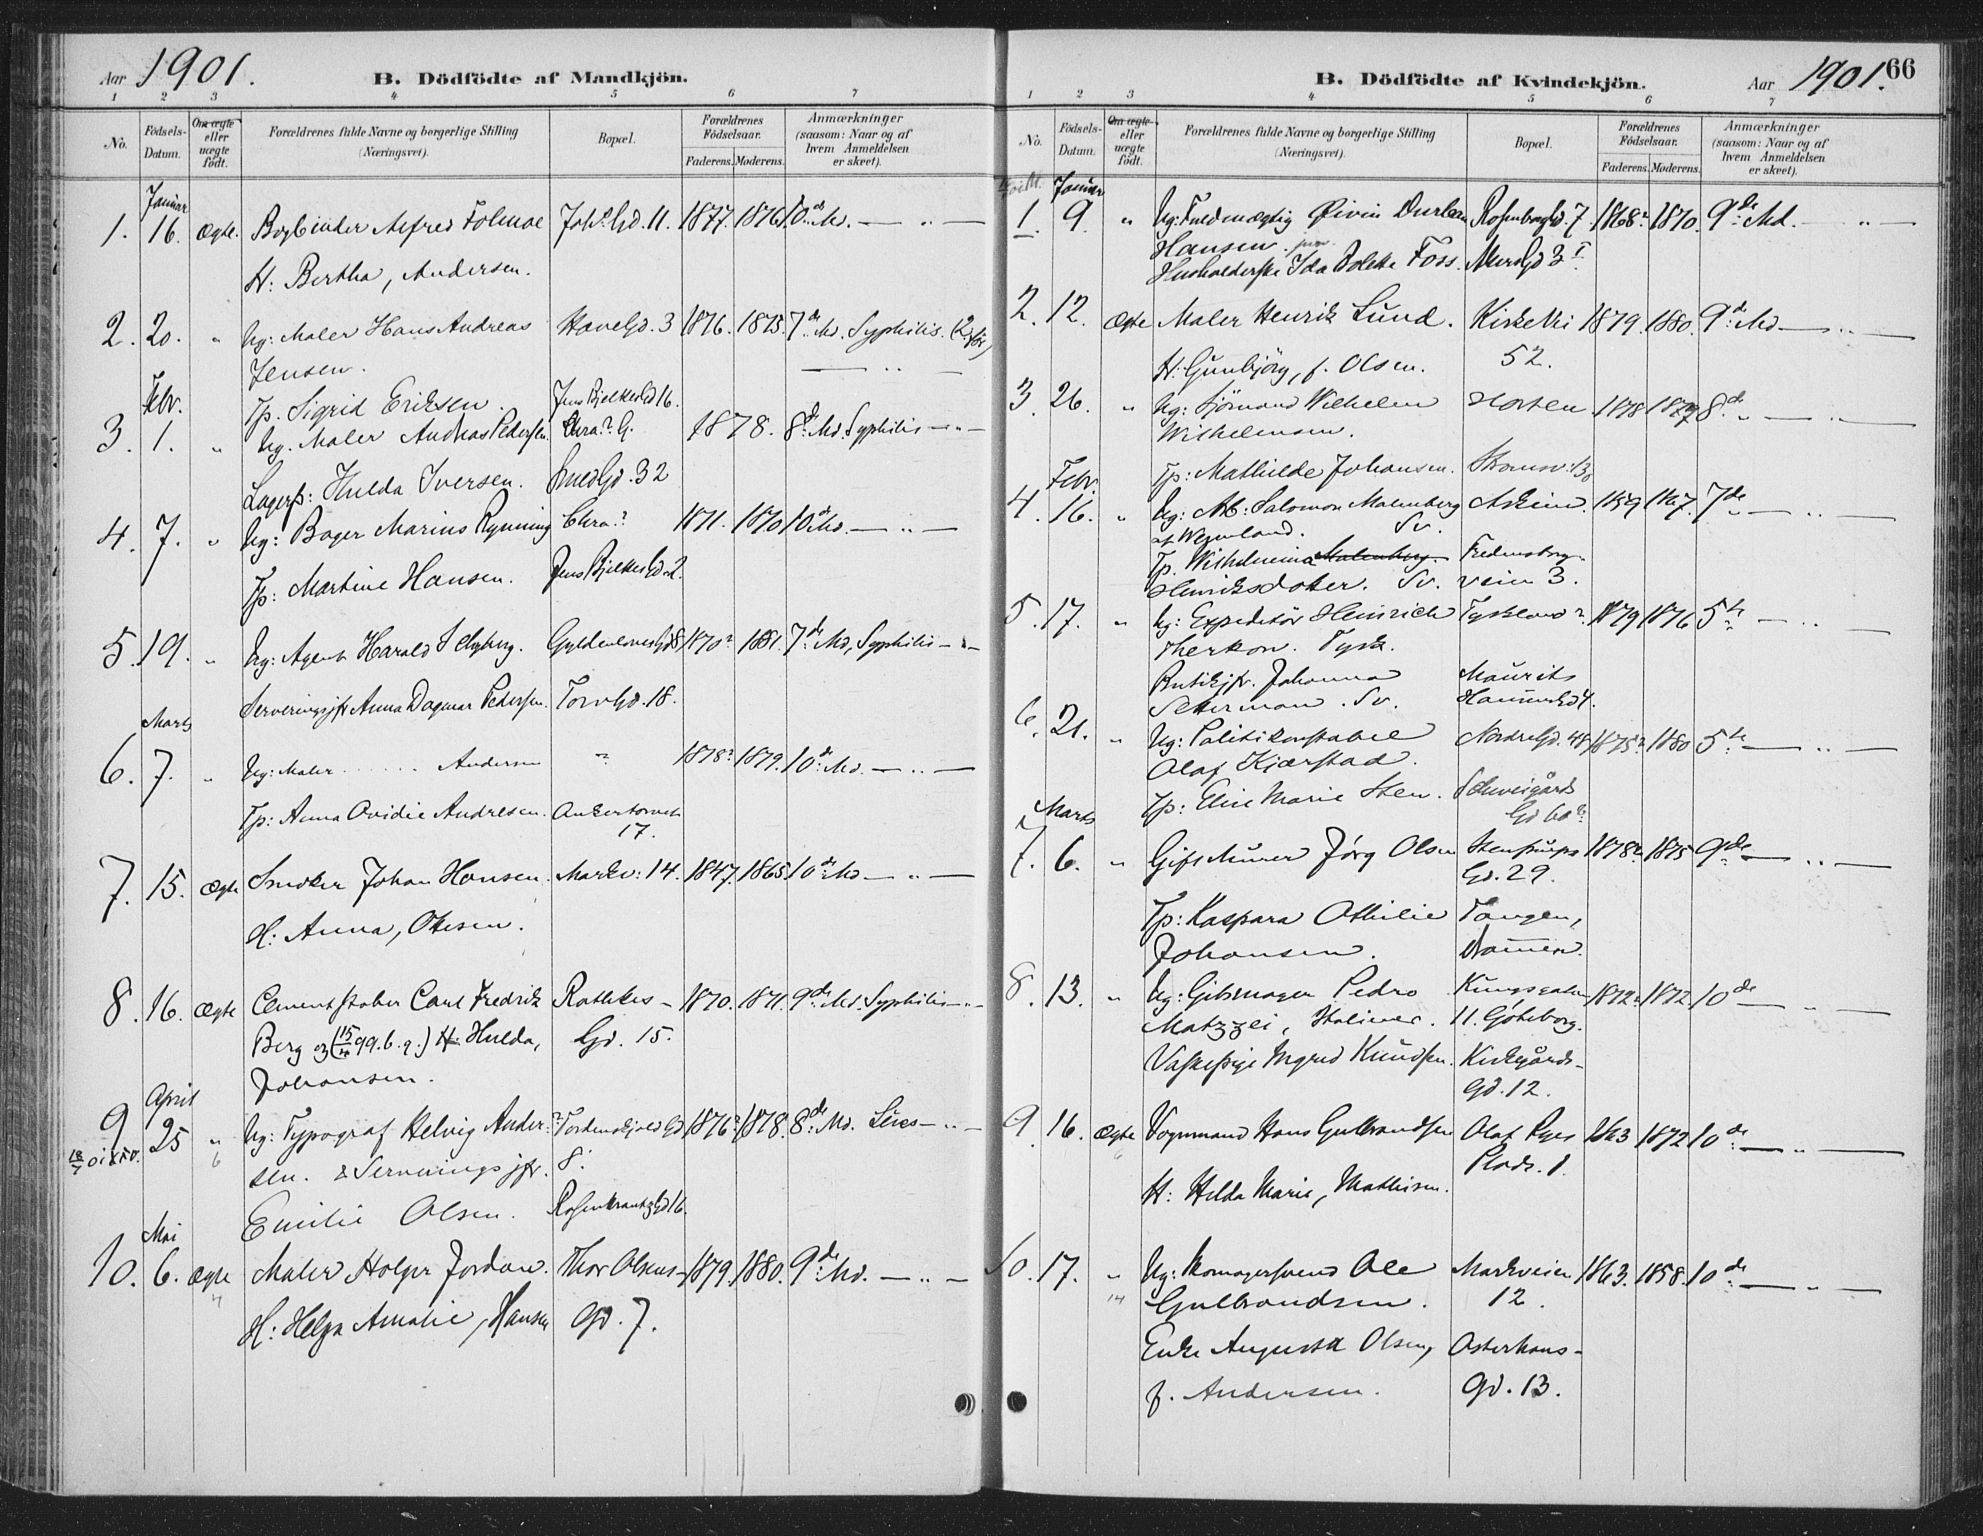 Aar 1901. B. Dödfödte af Mandkjön.
1 2 3 4 5 6 7
No. Födsels-Datum. Om ægte eller uægte födt. Forældrenes fulde Navne og borgerlige Stilling (Næringsvei). Bopæl. Forældrenes Födselsaar. Faderens. Moderens. Anmærkninger (saasom: Naar og af hvem Anmeldelsen er skeet).
Januar
1. 16. ægte. Bogbinder Alfred 11. 1877. 1876. 10de Md. — " —
H: Bertha, Andersen.
2. 20. " Ug: Maler Hans Andreas 3 1876. 1875. 7de Md. Syphilis.
Jensen. — " —
Tp. Sigrid Eriksen. Jens Bjelkes Gd 16.
Febr.
3. 1. " Ug. Maler Andreas Pedersen Chra? G. 1878. 8de Md. Syphilis — " —
Hulda Iversen. Gd. 32
4. 7. " Ug: Bager Marius Rynning Chra.? 1871. 1870 10de Md. — " —
Tp: Martine Hansen. Jens Bjelkes Gd. 2.
5. 19. " Ug: Agent Harald Gyldenløves Gd 8 1870? 1881. 7de Md, Syphilis — " —
Serveringsjfr Anna Dagmar Pedersen. Torv Gd. 18.
Marts
6. 7. " Ug: Maler ...... Andersen ? 1878? 1879. 10de Md. — " —
Tp: Anna Ovidie Andresen. Ankertorvet
17.
7. 15. ægte Smoker Johan Hansen. Markv: 14. 1847. 1865. 10de Md — " —
H: Anna, Olsen.
8. 16. ægte Cementstøber Carl Fredrik Rathkes- 1870. 1871. 9de Md. Syphilis — " —
Berg og (15/4 99. b. v.) H: Hulda, Gd. 15.
Johansen.
April
9 25 " Ug: Typograf Helvig Ander- Tordenskjolds Gd 1876? 1878. 8de Md. — " —
sen. & Serveringsjfr. 8.
Emilie Olsen. Rosenkrantz Gd 16.
Mai
10. 6. ægte Maler Holger Jordan. Thor Olsens- 1879. 1880. 9de Md. — " —
4 H: Helga Amalie, Hansen Gd. 7.
B. Dödfödte af Kvindekjön. Aar 1901. 66
1 2 3 4 5 6 7
No. Födsels-Datum. Om ægte eller uægte födt. Forældrenes fulde Navne og borgerlige Stilling (Næringsvei). Bopæl. Forældrenes Födselsaar. Faderens. Moderens. Anmærkninger (saasom: Naar og af hvem Anmeldelsen er skeet).
Januar
1. 9. " Ug: Fuldmægtig Øivin 7 1868? 1870. 9de Md. — " —
Hansen.
Husholderske Ida Foss. 3 I
2. 12. ægte Maler Henrik Lund. Kirkevei 1879. 1880. 9de Md — " —
H: Gunbjørg, f. Olsen. 52.
3. 26. " Ug: Sjømand Wilhelm Horten 1878 8de " — " —
Wilhelmsen.
Tp: Mathilde Johansen. Strømsv:
Febr.
4. 16. " Ug: Arb: Salomon Malmberg Askim. 1859 1867. 7de — " —
af Wermland. Sv.
Tp. Wilhelmina Malmberg Fredensborg-
Henriksdotter. Sv. veien 3.
5. 17. " Ug: Expeditör Heinrich Tyskland? 1879 1876 5te — " —
Therkon. Tysk.
Butikjfr. Johanna Maurits
Setterman. Sv. Hansens Gd 4.
6. 21. " Ug: Politikonstabel Nordre Gd. 48 1875? 1880 5te — " —
Olaf Kjærstad.
Tp: Eline Marie Sten. Schweigårds
Gd 60
Marts
7. 6. " Gift Murer Jørg Olsen Stenstrups 1878? 1875 9de — " —
Gd. 29.
Tp: Kaspara Othilie Tangen,
Johansen. Drammen.
8. 13. " Ug: Gibsmager Pedro Kungsgatan 1872? 1872. 10de — " —
Matzzei, Italiener. 11. Göteborg.
Vaskepige Ingrid Knudsen. Kirkegårds-
Gd. 12.
9. 16. ægte Vognmand Hans Gulbrandsen Olaf Ryes 1863 1872 10de — " —
Plads. 1.
H: Hilda Marie, Mathisen.
10. 17. " Ug: Skomagersvend Ole Markveien 1863. 1858. 10de — " —
14 Gulbrandsen. 12.
Enke Augusta Olsen, Osterhaus-
f. Andersen. Gd. 13.